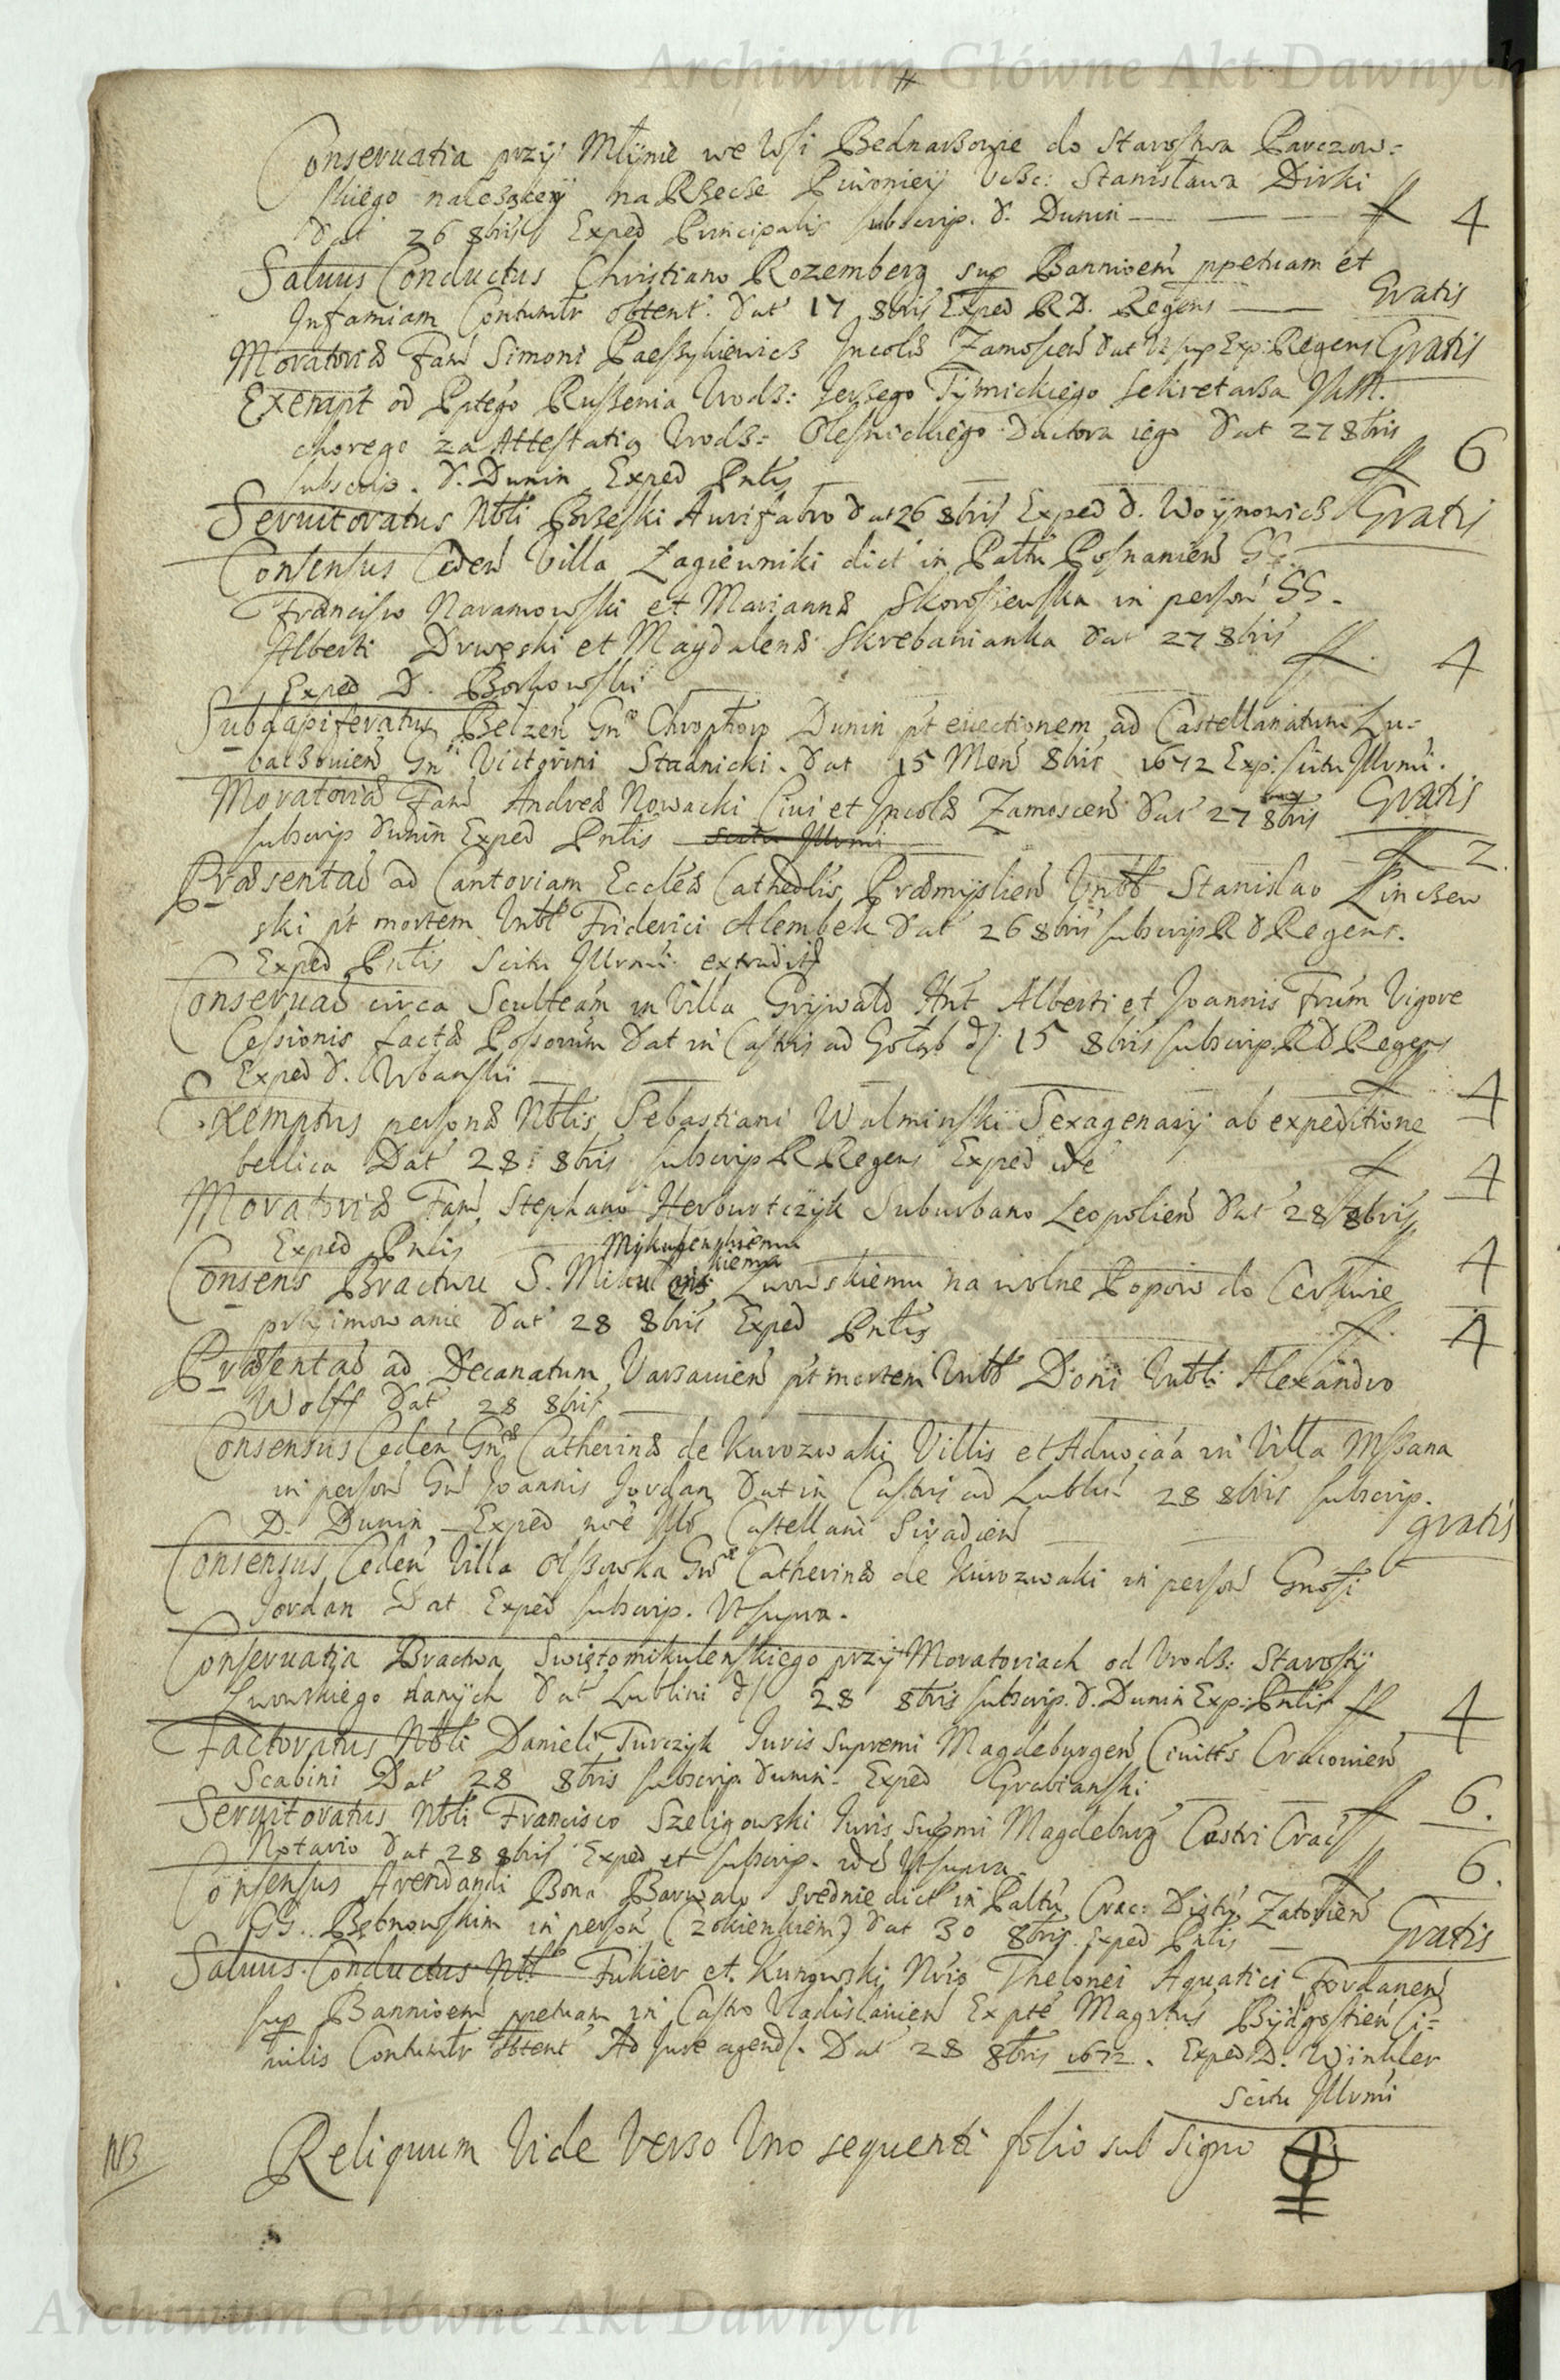 Archiwum Główne Akt Dawnych
#
Conservatia przÿ Młÿnie we Wsi Bednarzowie do Starostwa Parczow=
skiego należącey na Rzecze Piwonieÿ Uczc: Stanisława Dirki
Dat 26 8bris Exped Principalis subscrip. D. Dunin — — — ff 4
Salvus Conductus Christiano Rozemberg sup Bannioem ppetuam et
Infamiam Contumtr obtent. Dat 17 8bris Exped R D. Regens — Gratis
Moratoria Fam Simoni Paeszykiewicz Incolæ Zamoscien Dat Ut sup Exp: Regens Gratis
Exempt od Pptego Ruszenia Urodz: Jerzego Tÿmickiego Sekretarza JKM.
chorego za Attestatią Urodz: Olesnickiego Ductora iego Dat 27 8bris
subscrip. D. Dunin Exped Pntis — ff 6
Servitoratus Nbli Brzeski Aurifabro Dat 26 8bris Exped D. Woÿnowicz Gratis
Consensus Ceden Villa Zagiewniki dict in Pattu Posnanien GG.
Francisco Naramowski et Mariannæ Skoroszewska in person GG.
Alberti Drwęski et Magdalenæ Skrebanianka Dat 27 8bris
Exped D. Borkowski ff. 4
Subdapiferatus Belzen Gno Chrophoro Dunin pt evectionem ad Castellanatum Lu=
baczovien Gni Victorini Stadnicki. Dat 15 Men 8bris 1672 Exp: scitu Illrmi.
Moratoria Fam Andreæ Nowacki Civi et Incolæ Zamoscen Dat 27 8bris Gratis
subscrip Dunin Exped Pntis scitu Illrmi ff 2.
Præsentao ad Cantoriam Ecclesæ Cathedlis Præmÿslien Vnbl Stanislao Pinczew
ski pt mortem Vnbl Friderici Alembek Dat 26 8bris subscrip R D Regens.
Exped Pntis Scitu Illrmi extradit
Conservao circa Sculteam in Villa Grÿwałd Hnt Alberti et Joannis Frum Vigore
Cessionis factæ Possorum Dat in Castris ad Gołąb d. 15 8bris subscrip R D Regens
Exped D. Urbanski ff 4
Exemptus personæ Nblis Sebastiani Walminski Sexagenarÿ ab expeditione
bellica Dat 28 8bris subscrip R Regens Exped ide ff 4
Moratoria Fam Stephano Herburtczÿk Suburbano Leopolien Dat 28 8bris
Exped Pntis ff 4
Consens Bractwu S. Lwowskiemu na wolne Popow do Cerkwie
przÿimowanie Dat 28 8bris Exped Pntis ff. 4
Præsentao ad Decanatum Varsavien pt mortem Vnbl Doni Vnbli Alexandro
Wolff Dat 28 8bris
Consensus Ceden Gnæ Catherinæ de Kurozwaki Villis et Advocaa in Villa Mszana
in person Gni Joannis Jordan Dat in Castris ad Lublin 28 8bris subscrip.
D. Dunin Exped noe Illo Castellani Siradien gratis
Consensus Ceden Villa Olszowka Gnæ Catherinæ de Kurozwaki in person Gnosi
Jordan Dat Exped subscrip. Ut supra.
Conservatia Bractwa Swiętomikulenskiego przÿ Moratoriach od Urodz: Starostÿ
Lwowskiego danÿch Dat Lublini d. 28 8bris subscrip. D. Dunin Exp: Pntis ff 4
Factoratus Nbli Danieli Turczÿk Iuris Supremi Magdeburgen Civitts Cracovien
Scabini Dat 28 8bris subscrip Dunin. Exped Grabianski ff 6.
Servitoratus Nbli Francisco Szeligowski Iuris Supmi Magdeburg Castri Crac
Notario Dat 28 8bris Exped et subscrip. ide Ut supra ff 6.
Consensus Arendandi Bona Barwałd srednie dict in Paltu Crac: Distu Zatorien
GG. Bętkowskim in person Dat 30 8bris Exped Pntis — Gratis
Salvus Conductus Nbl Fukier et Kungwski Nris Thelonei Aquatici Fordanen
sup Bannioem ppetuam in Castro Vladislavien Ex pte Magrtus Bÿdgostien Ci=
vilis Contumtr obtent Ad Jure agend. Dat 28 8bris 1672. Exped D. Winkler
scitu Illrmi
NB Reliquum Vide Verso Uno sequenti folio sub signo
Archiwum Główne Akt Dawnych